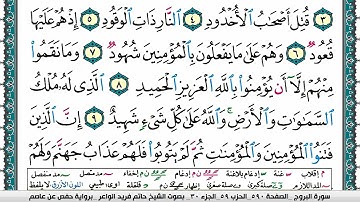 ٣ قُتِلَ أَصْحَٰبُ ٱلْأُخْدُودِ ٤ ٱلنَّارِ ذَاتِ ٱلْوَقُودِ ٥ إِذْ هُمْ عَلَيْهَا
قُعُودٌ ٦ وَهُمْ عَلَىٰ مَا يَفْعَلُونَ بِٱلْمُؤْمِنِينَ شُهُودٌ ٧ وَمَا نَقَمُوا۟
مِنْهُمْ إِلَّآ أَن يُؤْمِنُوا۟ بِٱللَّهِ ٱلْعَزِيزِ ٱلْحَمِيدِ ٨ ٱلَّذِى لَهُۥ مُلْكُ
ٱلسَّمَٰوَٰتِ وَٱلْأَرْضِ ۚ وَٱللَّهُ عَلَىٰ كُلِّ شَىْءٍ شَهِيدٌ ٩ إِنَّ ٱلَّذِينَ
فَتَنُوا۟ ٱلْمُؤْمِنِينَ وَٱلْمُؤْمِنَٰتِ ثُمَّ لَمْ يَتُوبُوا۟ فَلَهُمْ عَذَابُ جَهَنَّمَ وَلَهُمْ
سورة البروج - الصفحة ٥٩٠ - الحزب ٥٩ - الجزء ٣٠ - بصوت الشيخ حاتم فريد الواعر - برواية حفص عن عاصم